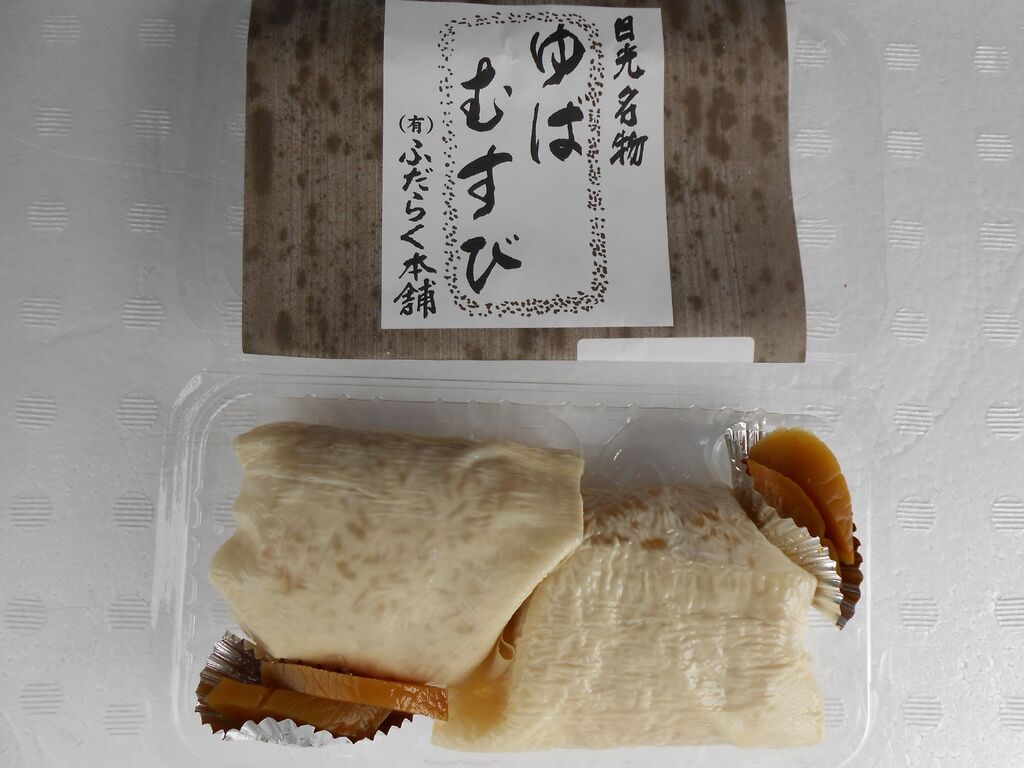 日光名物
ゆば
むすび
(有)ふだらく本舗